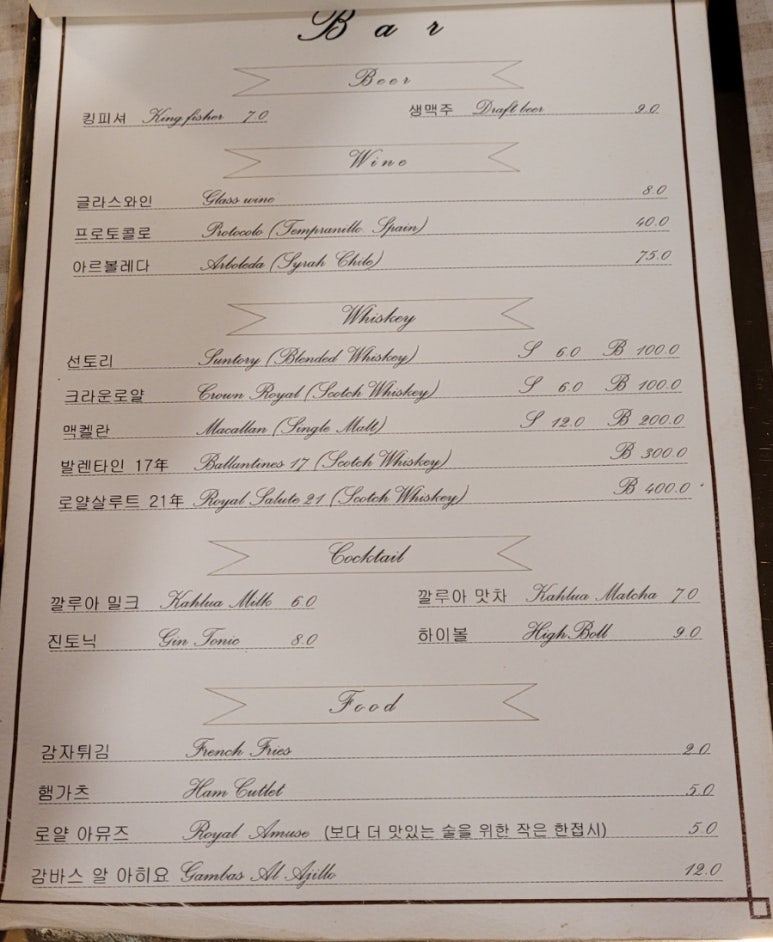 Bar
Beer
킹피셔 King fisher 7.0 생맥주 Draft beer 9.0
Wine
글라스와인 Glass wine 8.0
프로토콜로 Protocolo (Tempranillo Spain) 40.0
아르볼레다 Arboleda (Syrah Chile) 75.0
Whiskey
선토리 Suntory (Blended Whiskey) S 6.0 B 100.0
크라운로얄 Crown Royal (Scotch Whiskey) S 6.0 B 100.0
맥켈란 Macallan (Single Malt) S 12.0 B 200.0
발렌타인 17年 Ballantines 17 (Scotch Whiskey) B 300.0
로얄살루트 21年 Royal Salute 21 (Scotch Whiskey) B 400.0
Cocktail
깔루아 밀크 Kahlua Milk 6.0 깔루아 맛차 Kahlua Matcha 7.0
진토닉 Gin Tonic 8.0 하이볼 High Boll 9.0
Food
감자튀김 French Fries 2.0
행가츠 Ham Cutlet 5.0
로얄 아뮤즈 Royal Amuse (보다 더 맛있는 술을 위한 작은 한접시) 5.0
감바스 알 아히요 Gambas Al Ajillo 12.0